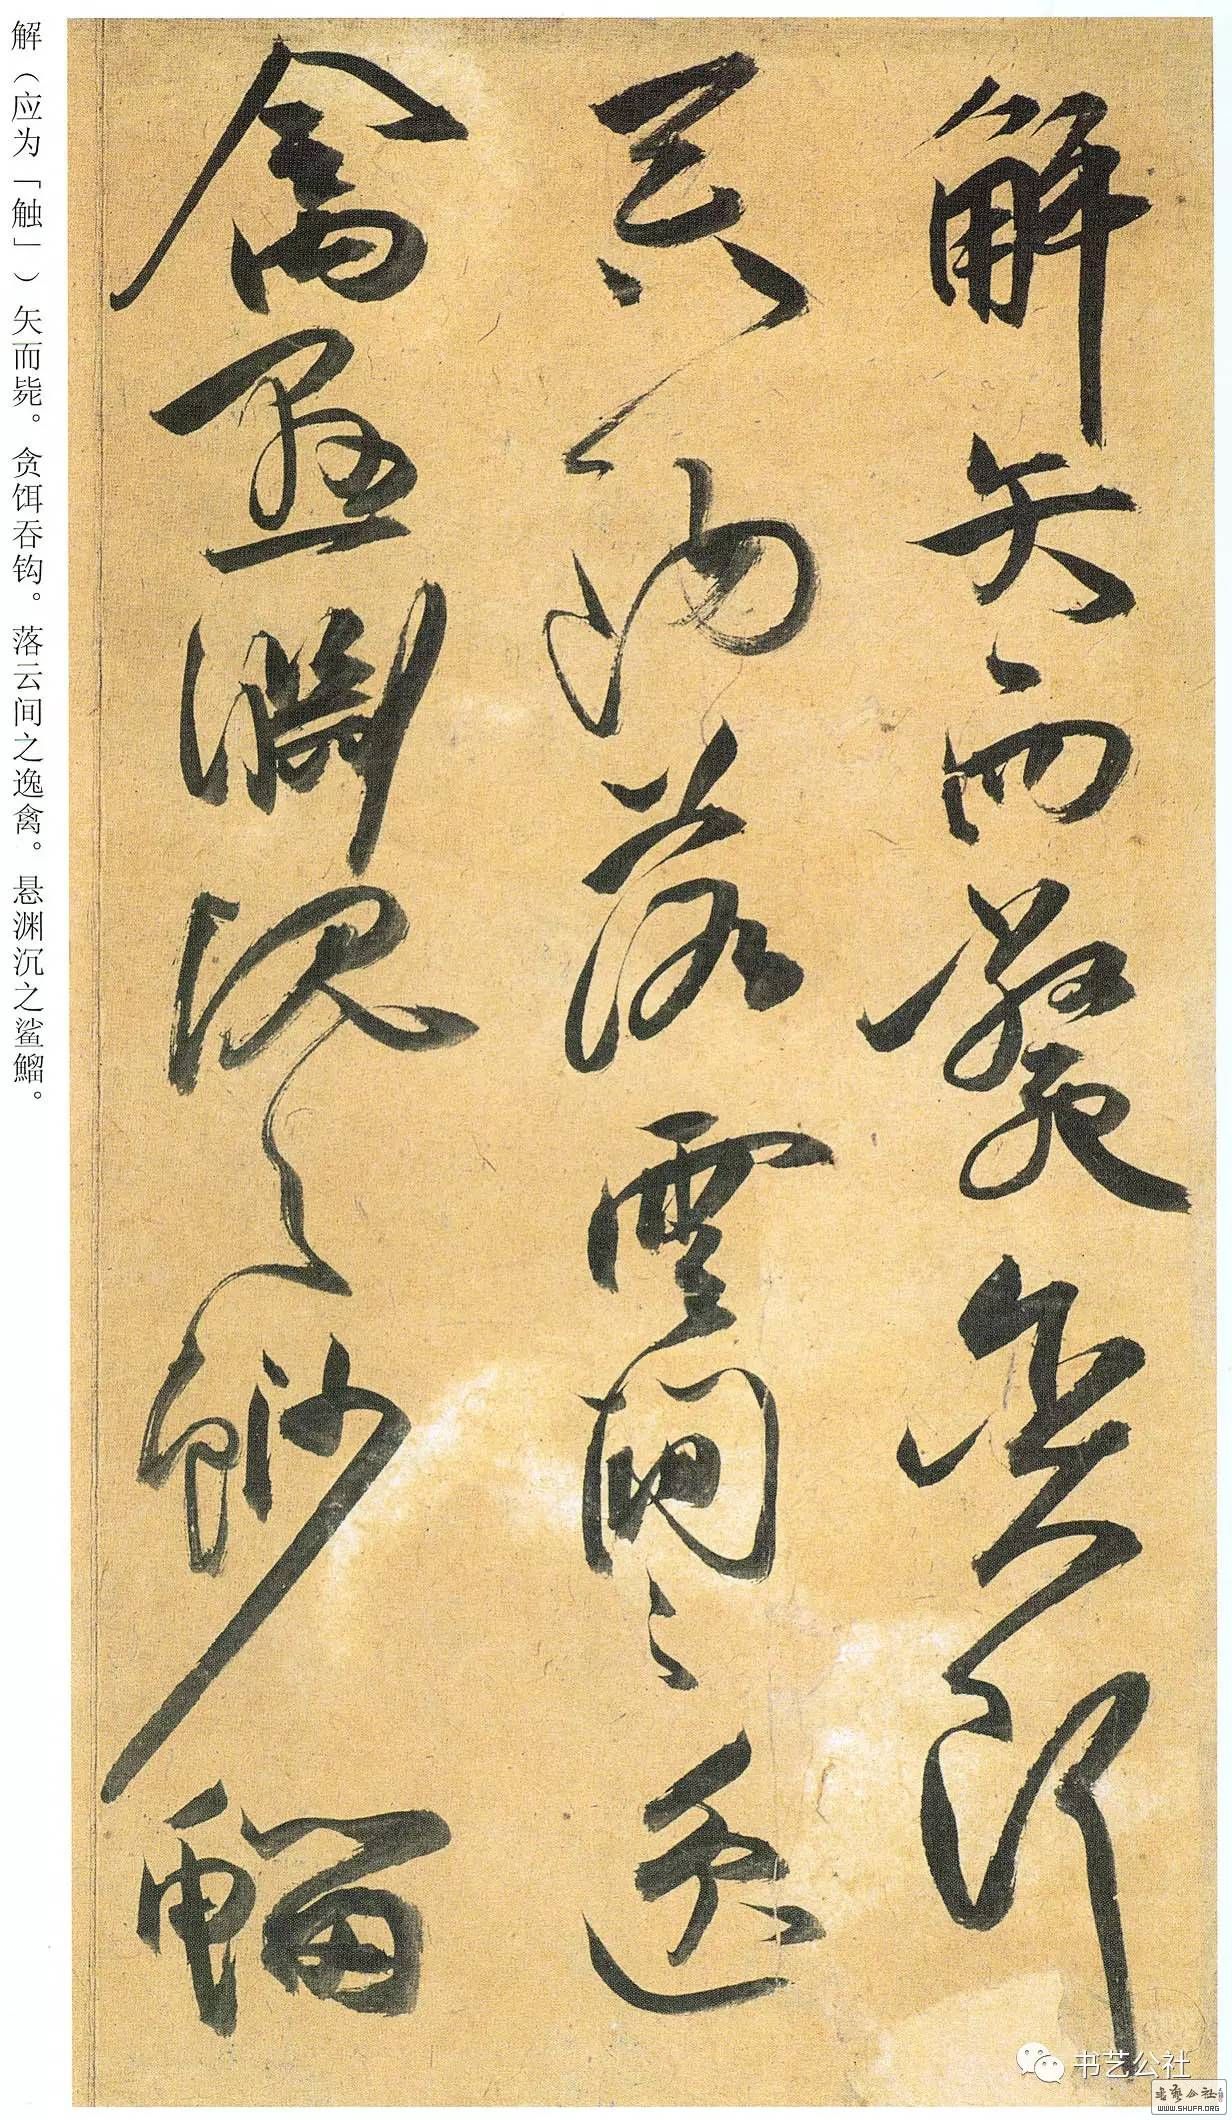 解矢而斃貪餌
吞鈎落雲間之逸
禽懸淵沉之魦鰡
解（应为「触」）矢而毙。贪饵吞钩。落云间之逸禽。悬渊沉之鲨鰡。
书艺公社
书艺公社
WWW.SHUFA.ORG